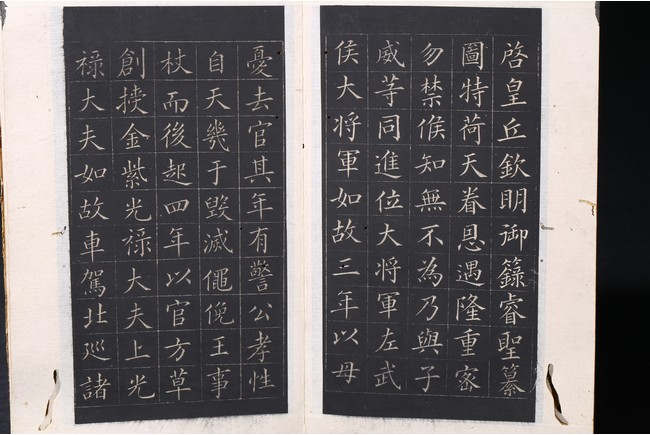 啓皇丘欽明御籙睿聖纂
圖特荷天眷恩遇隆重宻
勿禁候知無不為乃與子
威等同進位大將軍左武
侯大將軍如故三年以母
憂去官其年有警公孝性
自天幾于毀滅僶俛王事
杖而後起四年以官方草
創授金紫光祿大夫上光
祿大夫如故車駕北巡諸